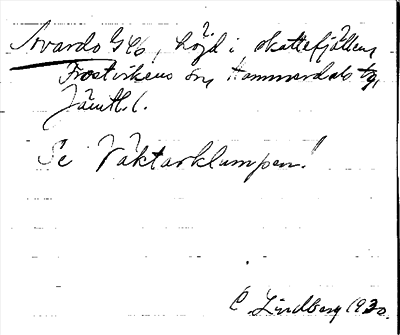 Arvardo G46, höjd i skattefjällens
Frostvikens sn, Hammerdals tg,
Jämtl. l.
Se Väktarklumpen!
C Lindberg 1930.